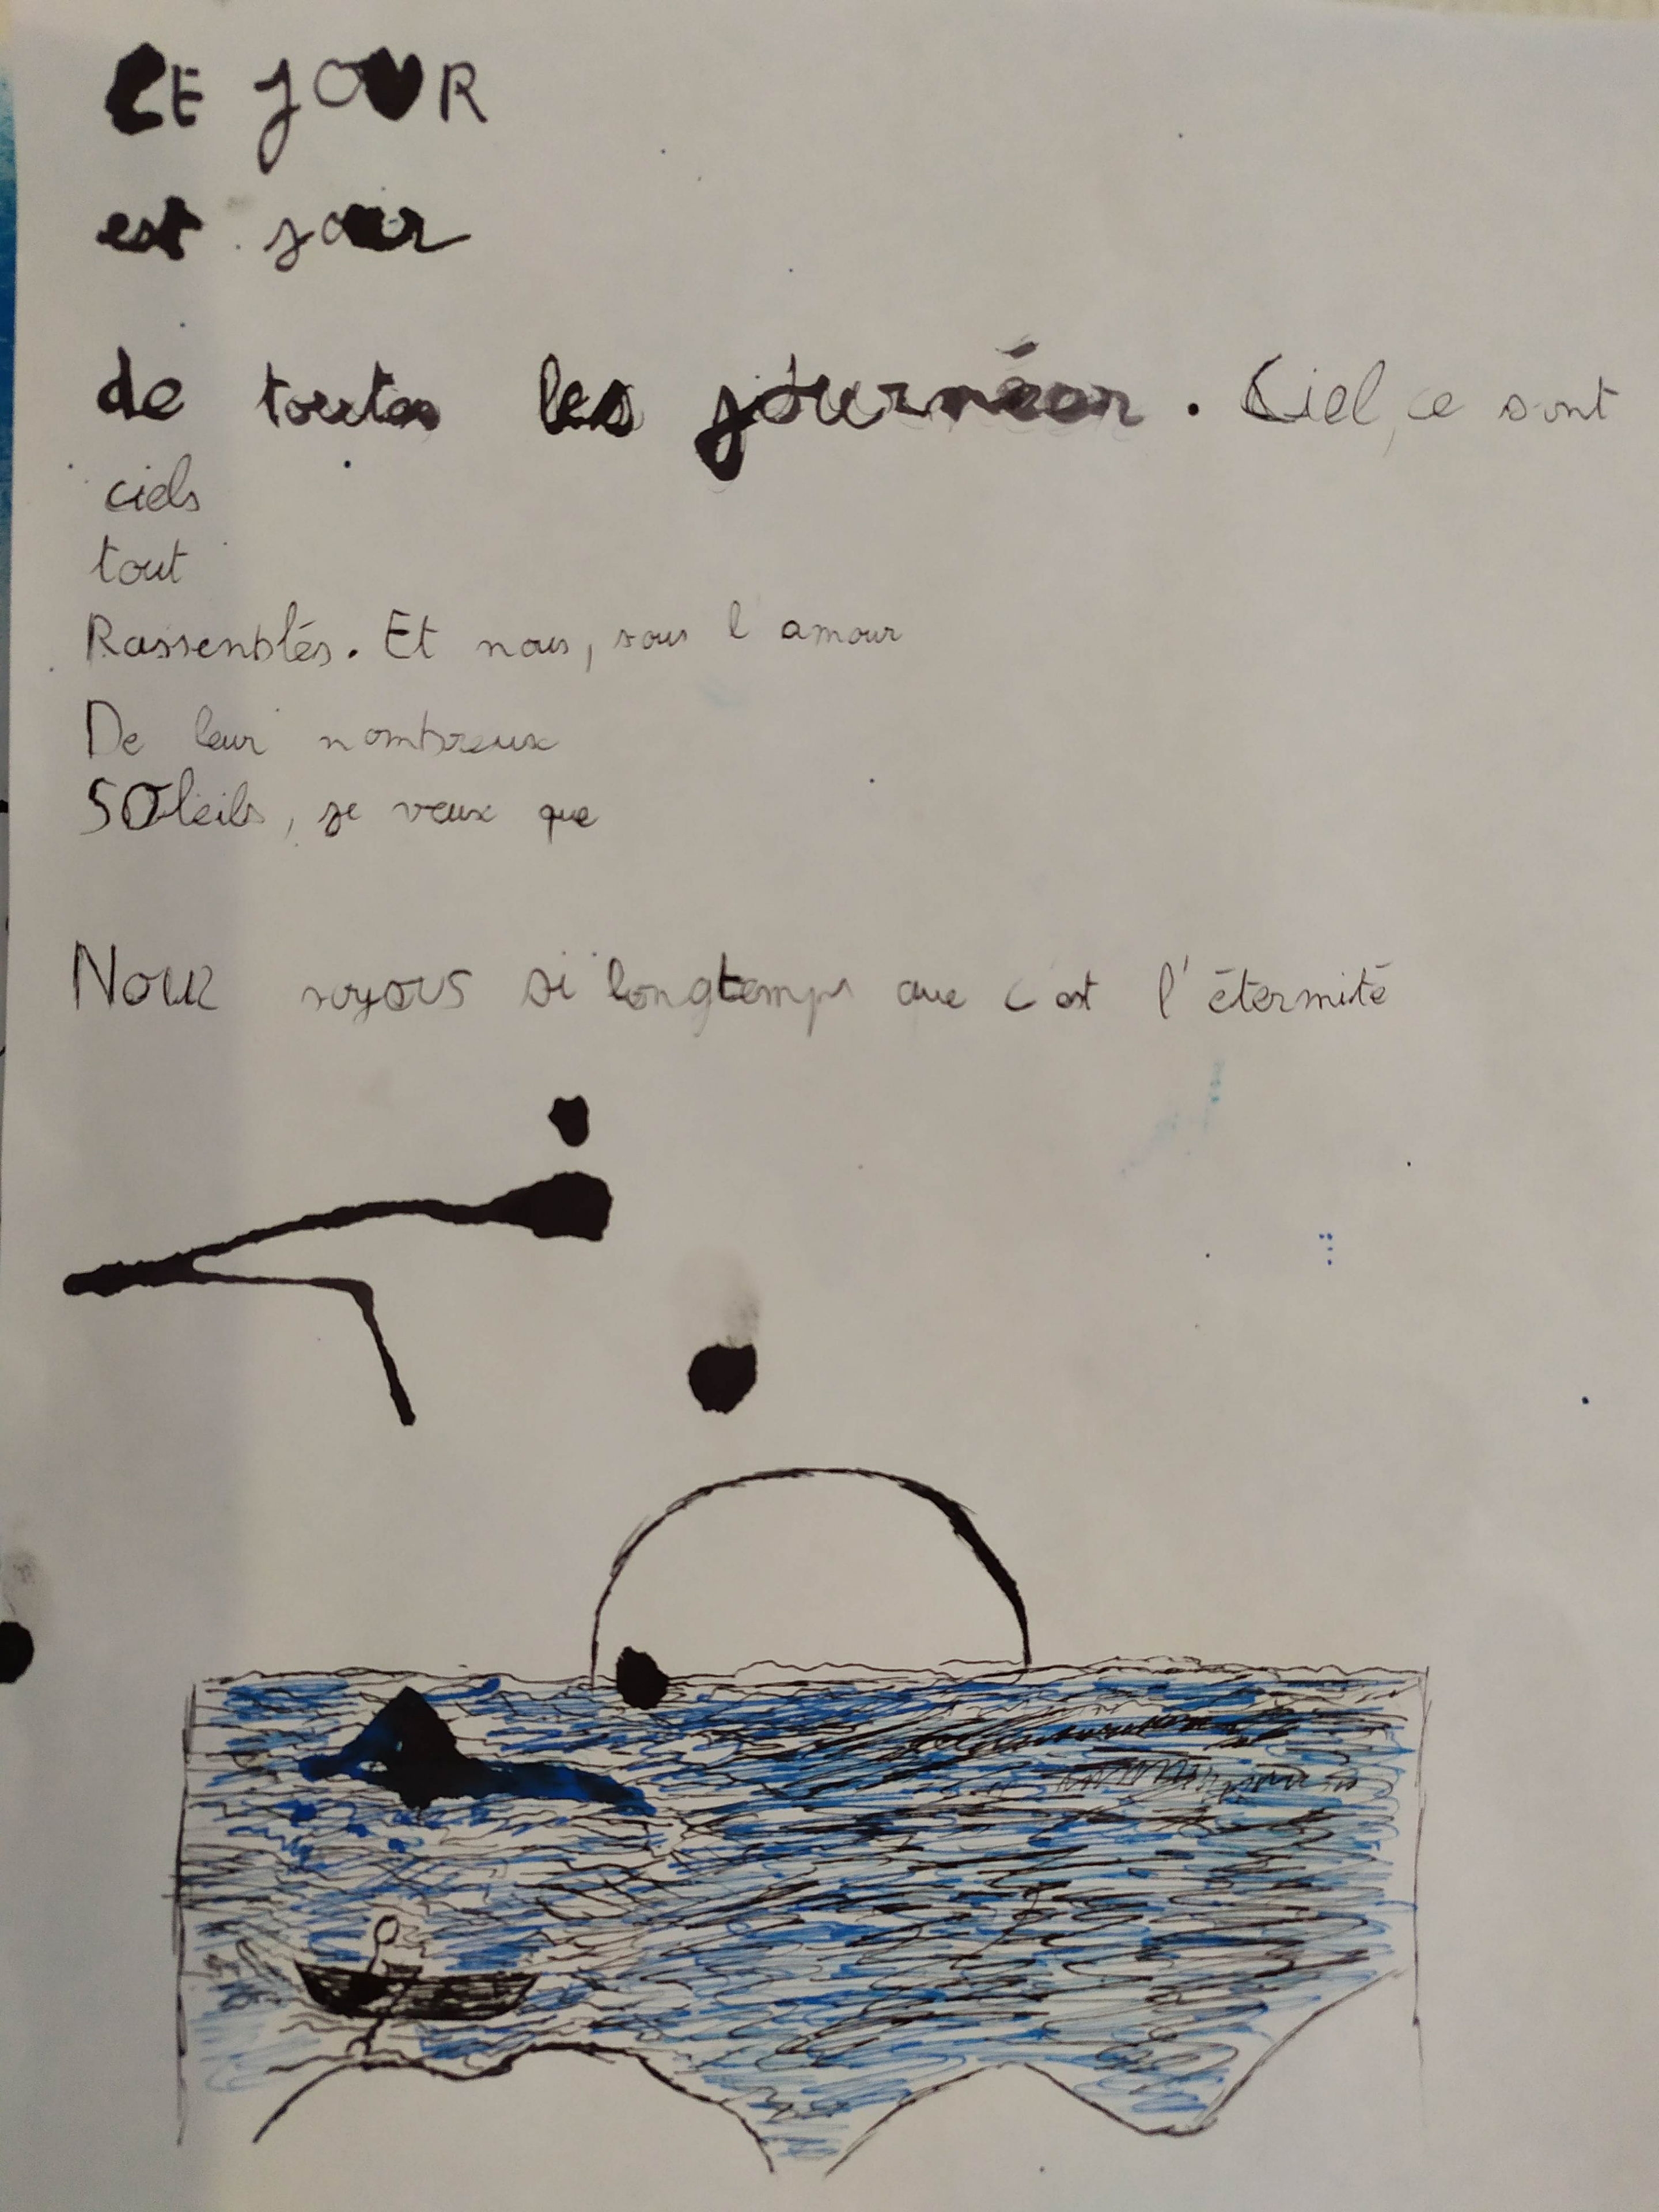 LE JOUR
est jour
de toutes les journées. Ciel, ce sont
ciels
tout
Rassemblés. Et nous, sous l amour
De leur nombreux
SOleils, je veux que
Nous soyons si longtemps que c'est l'éternité